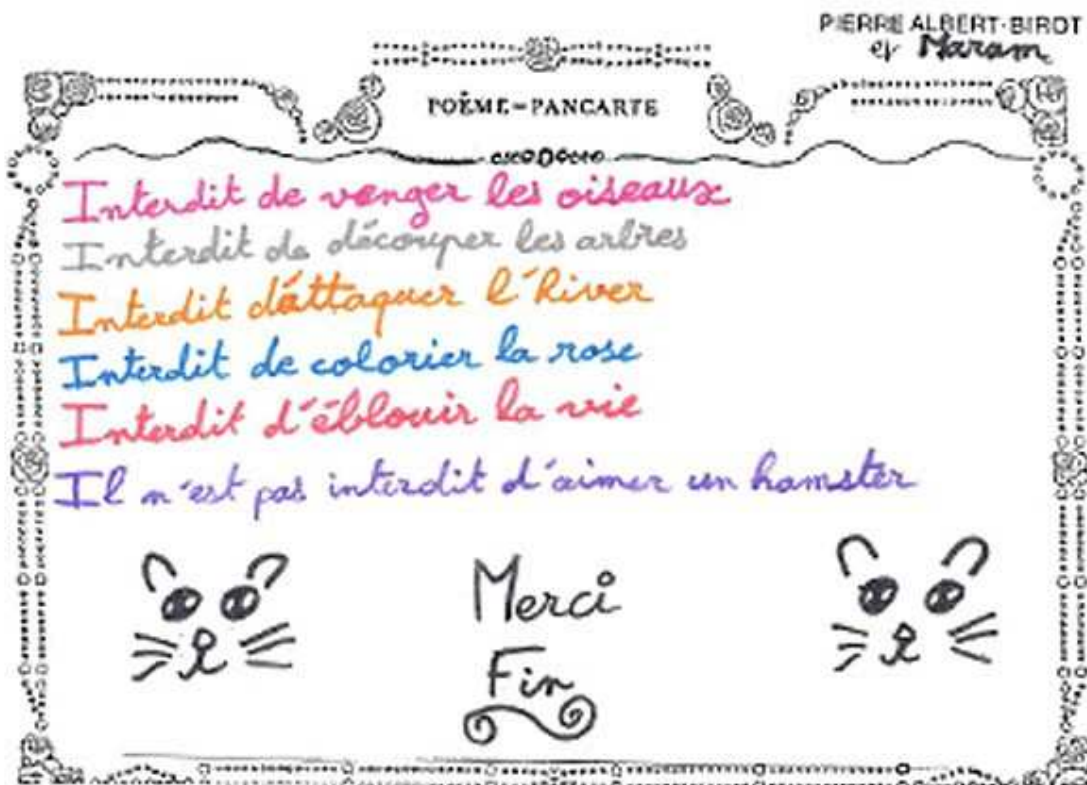 PIERRE ALBERT-BIROT
et Maram
POÈME-PANCARTE
Interdit de venger les oiseaux
Interdit de découper les arbres
Interdit d'attaquer l'hiver
Interdit de colorier la rose
Interdit d'éblouir la vie
Il n'est pas interdit d'aimer un hamster
Merci
Fin